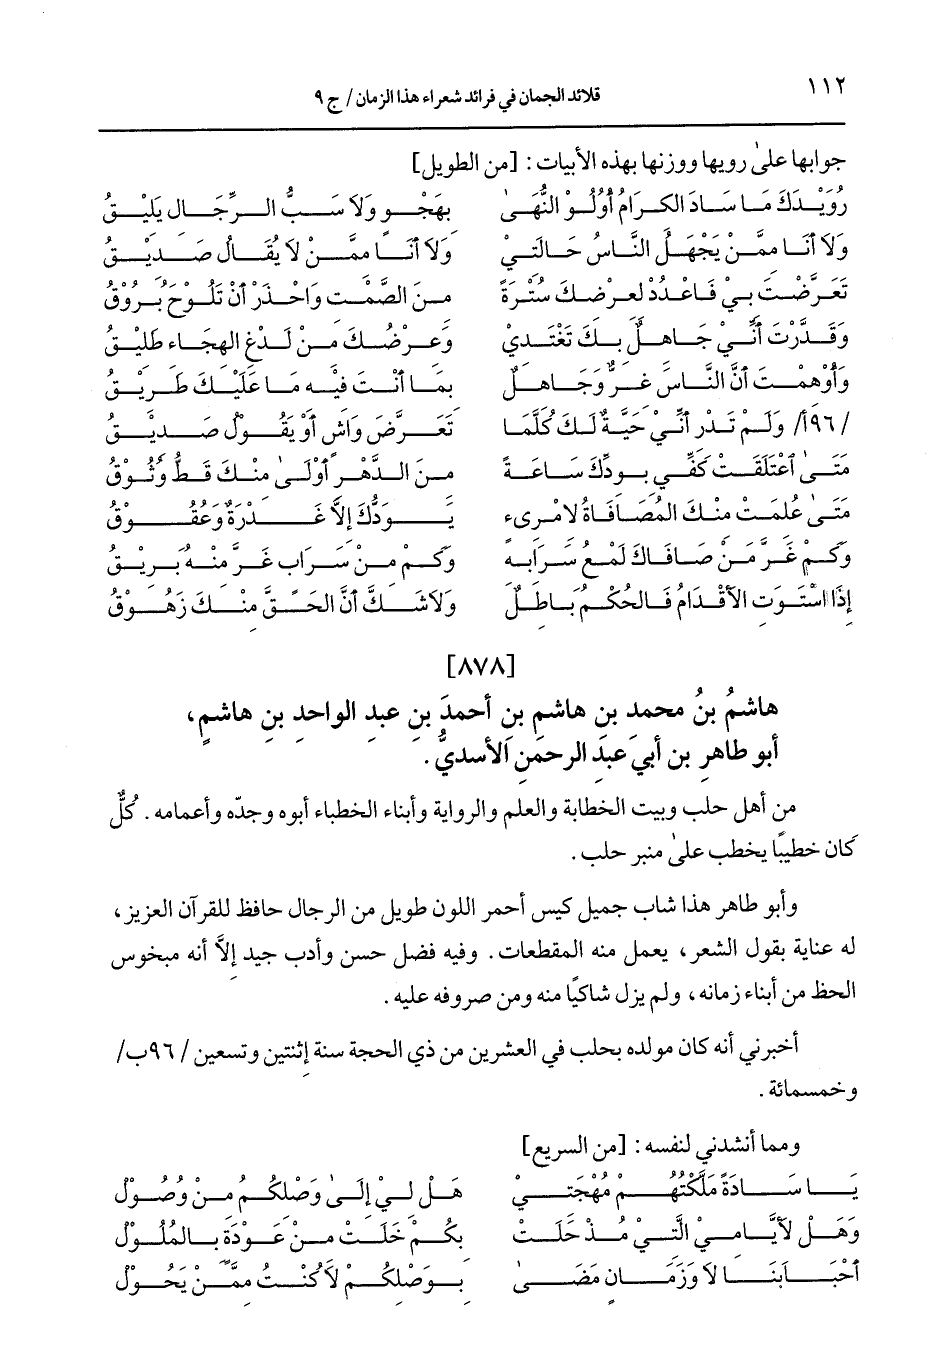 ١١٢
قلائد الجمان في فرائد شعراء هذا الزمان / ج ٩
جوابها علىٰ رويها ووزنها بهذه الأبيات : [من الطويل]
رُوَيْدكَ مَا سَادَ الكرامُ أُولُو النُّهىٰ بِهَجْوٍ ولَا سَبُّ الرِّجَالِ يَلِيْقُ
وَلَا أنَا ممَّنْ يَجْهَلُ النَّاسُ حَالَتِي وَلَا أنَا ممَّنْ لَا يُقَالُ صَدِيْقُ
تَعَرَّضْتَ بِيْ فَاعْدُدْ لِعِرْضِكَ سُتْرَةً مِنَ الصَّمْتِ وَاحْذَرْ أنْ تَلُوحَ بُرُوْقُ
وَقَدَّرْتَ أنِّيْ جَاهِلٌ بِكَ تَغْتَدِيْ وَعِرْضُكَ مِنْ لَدْغِ الهِجَاءِ طَلِيْقُ
وَأوْهَمْتَ أنَّ النَّاسَ غِرٌّ وَجَاهِلٌ بِمَا أنْتَ فِيْهِ مَا عَلَيْكَ طَرِيْقُ
/٩٦أ/ وَلَمْ تَدْرِ أنِّيْ حَيَّةٌ لَكَ كُلَّمَا تَعَرَّضَ وَاشٍ أوْ يَقُوْلُ صَدِيْقُ
مَتَىٰ أعْتَلَقَتْ كَفِّي بِودِّكَ سَاعَةً مِنَ الدَّهْرِ أوْلَىٰ مِنْكَ قَطُّ وُثُوْقُ
مَتَىٰ عُلِمَتْ مِنْكَ المُصَافَاةُ لامْرِىءٍ بِوُدِّكَ إلاَّ غَدْرَةٌ وَعُقُوْقُ
وَكَمْ غَرَّ مَنْ صَافَاكَ لَمْعُ سَرَابِهِ وَكَمْ مِنْ سَرَابٍ غَرَّ مِنْهُ بَرِيْقُ
إذَا اسْتَوَتِ الأقْدَامُ فَالحُكْمُ بَاطِلٌ وَلَاشَكَّ أنَّ الحَقَّ مِنْكَ زَهُوْقُ
[٨٧٨]
هاشمُ بنُ محمدِ بنِ هاشمِ بنِ أحمدَ بنِ عبدِ الواحدِ بنِ هاشمٍ،
أبو طاهرِ بن أبي عبدِ الرحمٰنِ الأسديُّ .
من أهل حلب وبيت الخطابة والعلم والرواية وأبناء الخطباء أبوه وجدّه وأعمامه . كُلٌّ
كان خطيبًا يخطب علىٰ منبر حلب .
وأبو طاهر هذا شاب جميل كيس أحمر اللون طويل من الرجال حافظ للقرآن العزيز،
له عناية بقول الشعر، يعمل منه المقطعات . وفيه فضل حسن وأدب جيد إلاَّ أنه مبخوس
الحظ من أبناء زمانه، ولم يزل شاكيًا منه ومن صروفه عليه .
أخبرني أنه كان مولده بحلب في العشرين من ذي الحجة سنة إثنتين وتسعين /٩٦ب/
وخمسمائة .
ومما أنشدني لنفسه : [من السريع]
يَا سَادَةً مَلَّكْتُهُمْ مُهْجَتِيْ هَلْ لِيْ إلَىٰ وَصْلِكُمُ مِنْ وُصُوْلْ
وَهَلْ لأيَّامِيْ الَّتِيْ مُذْ خَلَتْ بِكُمْ خَلَتْ مِنْ عَوْدَةٍ بِالمُلُوْلْ
أحْبَابَنَا لَا وَزَمَانٍ مَضَىٰ بِوَصْلِكُمْ لَا كُنْتُ ممَّنْ يَحُوْلْ